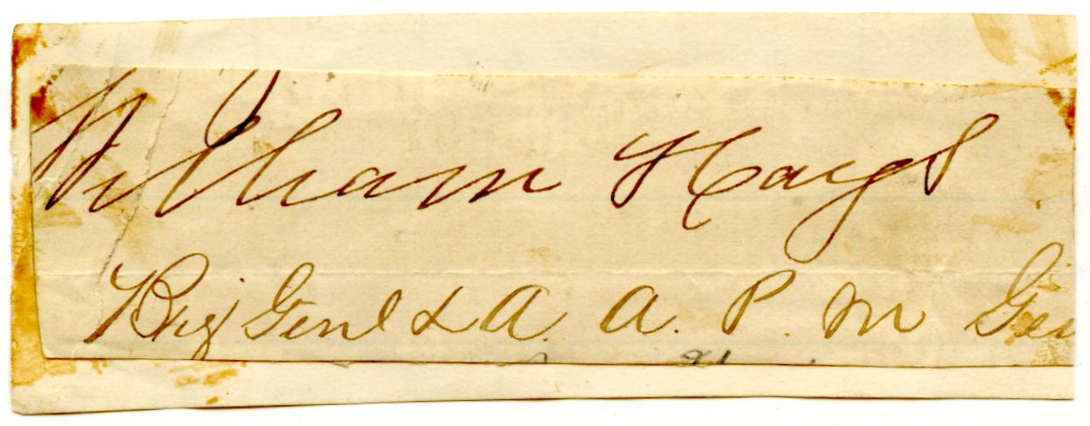 William Hays
Brig Genl & A. A. P. M Gen